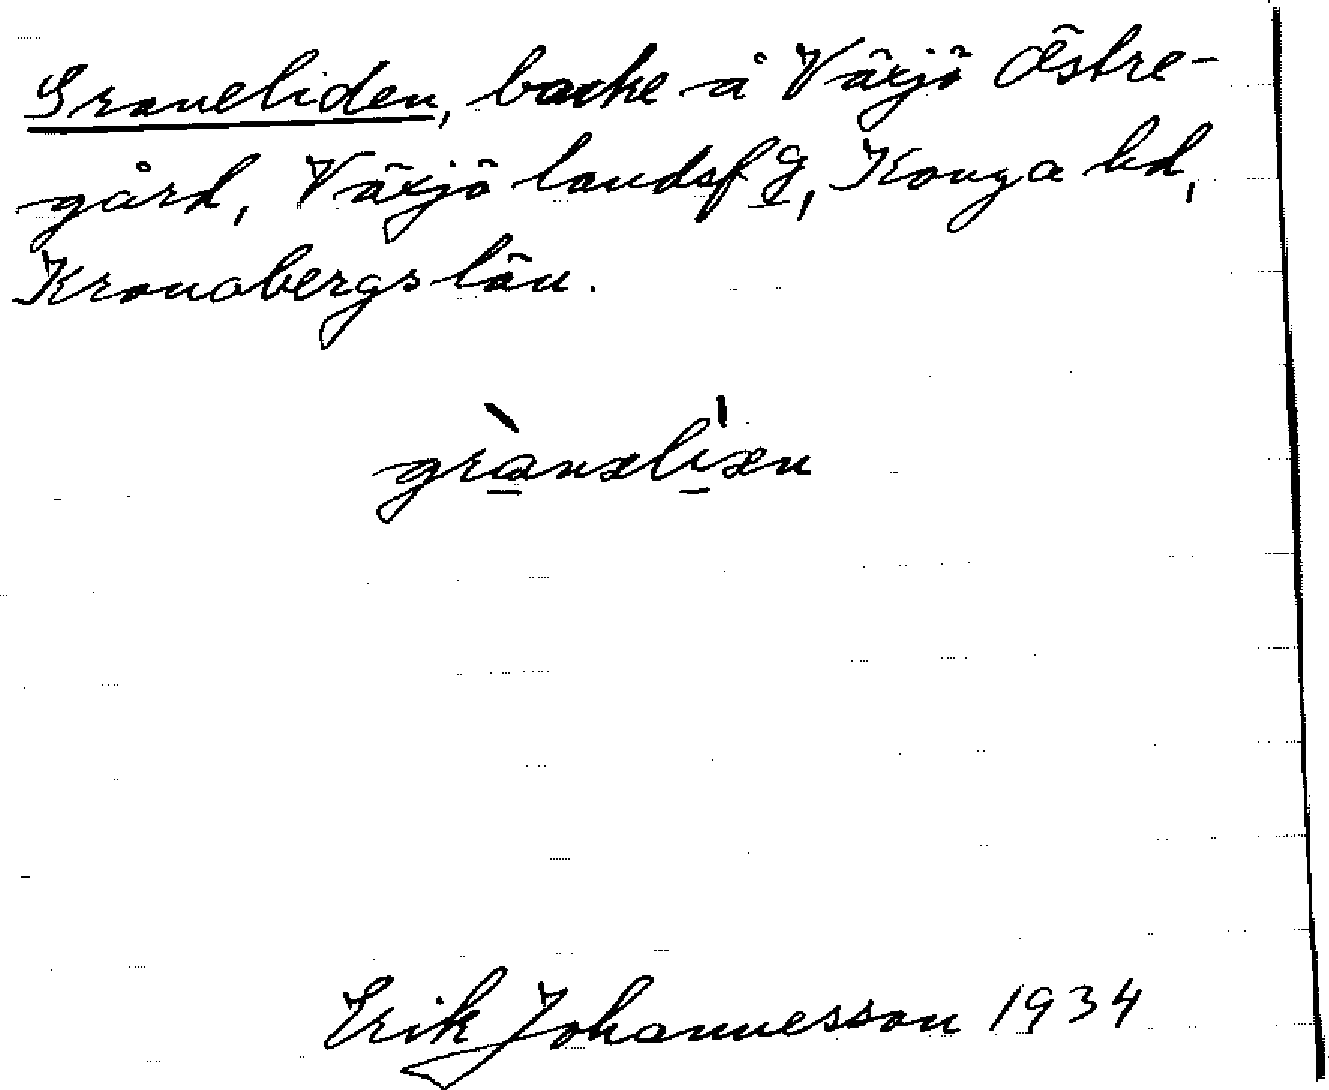 Graneliden, backe å Växjö Östre-
gård, Växjö landsfg, Konga hd,
Kronobergs län.
grànəlìən
Erik Johannesson 1934